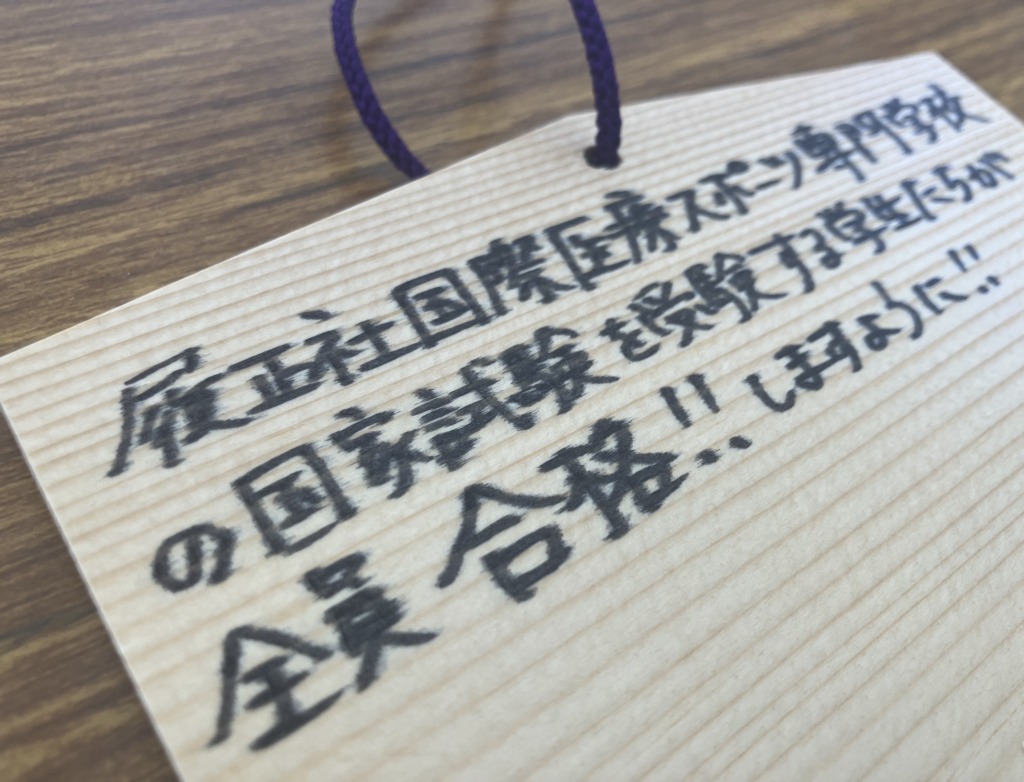 履正社国際医療スポーツ専門学校
の国家試験を受験する学生たちが
全員 合格!! しますように!!